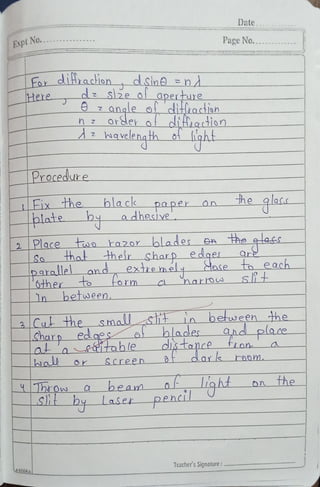 Date
Expt No.
Page No.
For diffraction, d sinθ = nλ
Here, d = size of aperture
θ = angle of diffraction
n = order of diffraction
λ = wavelength of light
Procedure
1. Fix the black paper on the glass
plate by adhesive.
2. Place two razor blades on the glass
so that their sharp edges are
parallel and extremely close to each
other to form a narrow slit
in between.
3. Cut the small slit in between the
sharp edges of blades and place
at a suitable distance from a
wall or screen of dark room.
4. Throw a beam of light on the
slit by Laser pencil
Teacher's Signature :